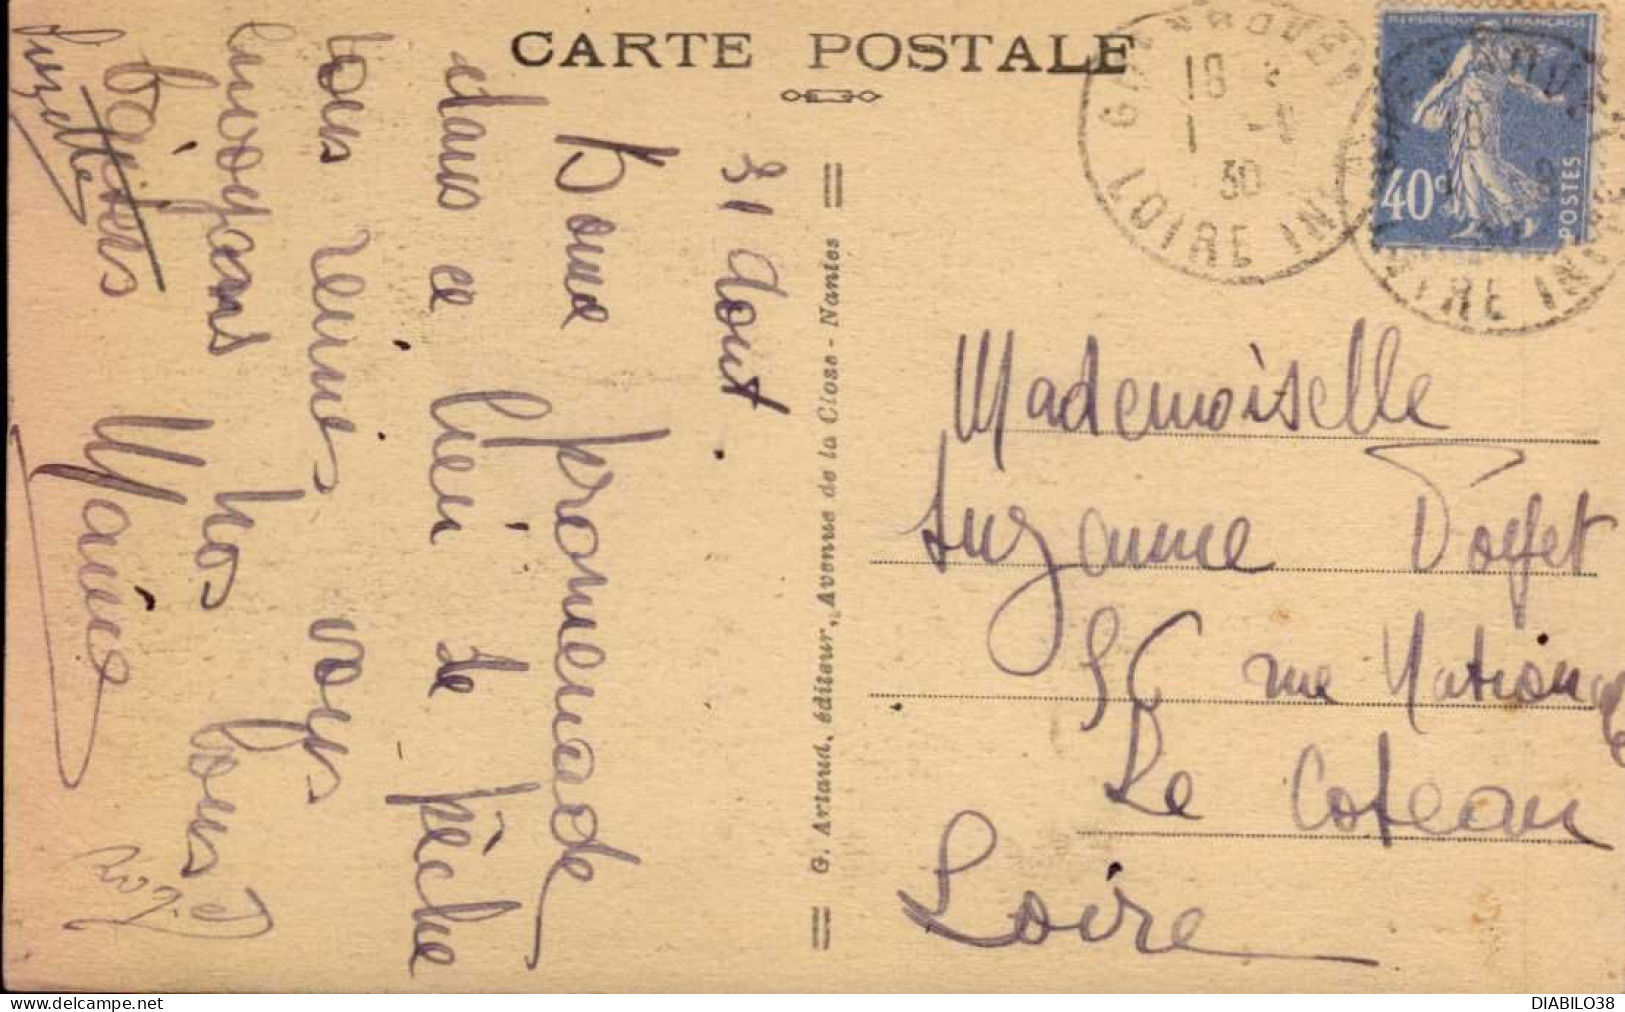 CARTE POSTALE
31 Aout
Bonne promenade
dans ce lieu de pêche
tous réunis vous
envoyons nos bons
baisers
Suzette Marie
G. Artaud, éditeur, Avenue de la Close - Nantes
RÉPUBLIQUE FRANÇAISE
40c
POSTES
18
1 30
LOIRE INF
Mademoiselle
Suzanne
rue Nationale
Le Coteau
Loire
DIABILO38